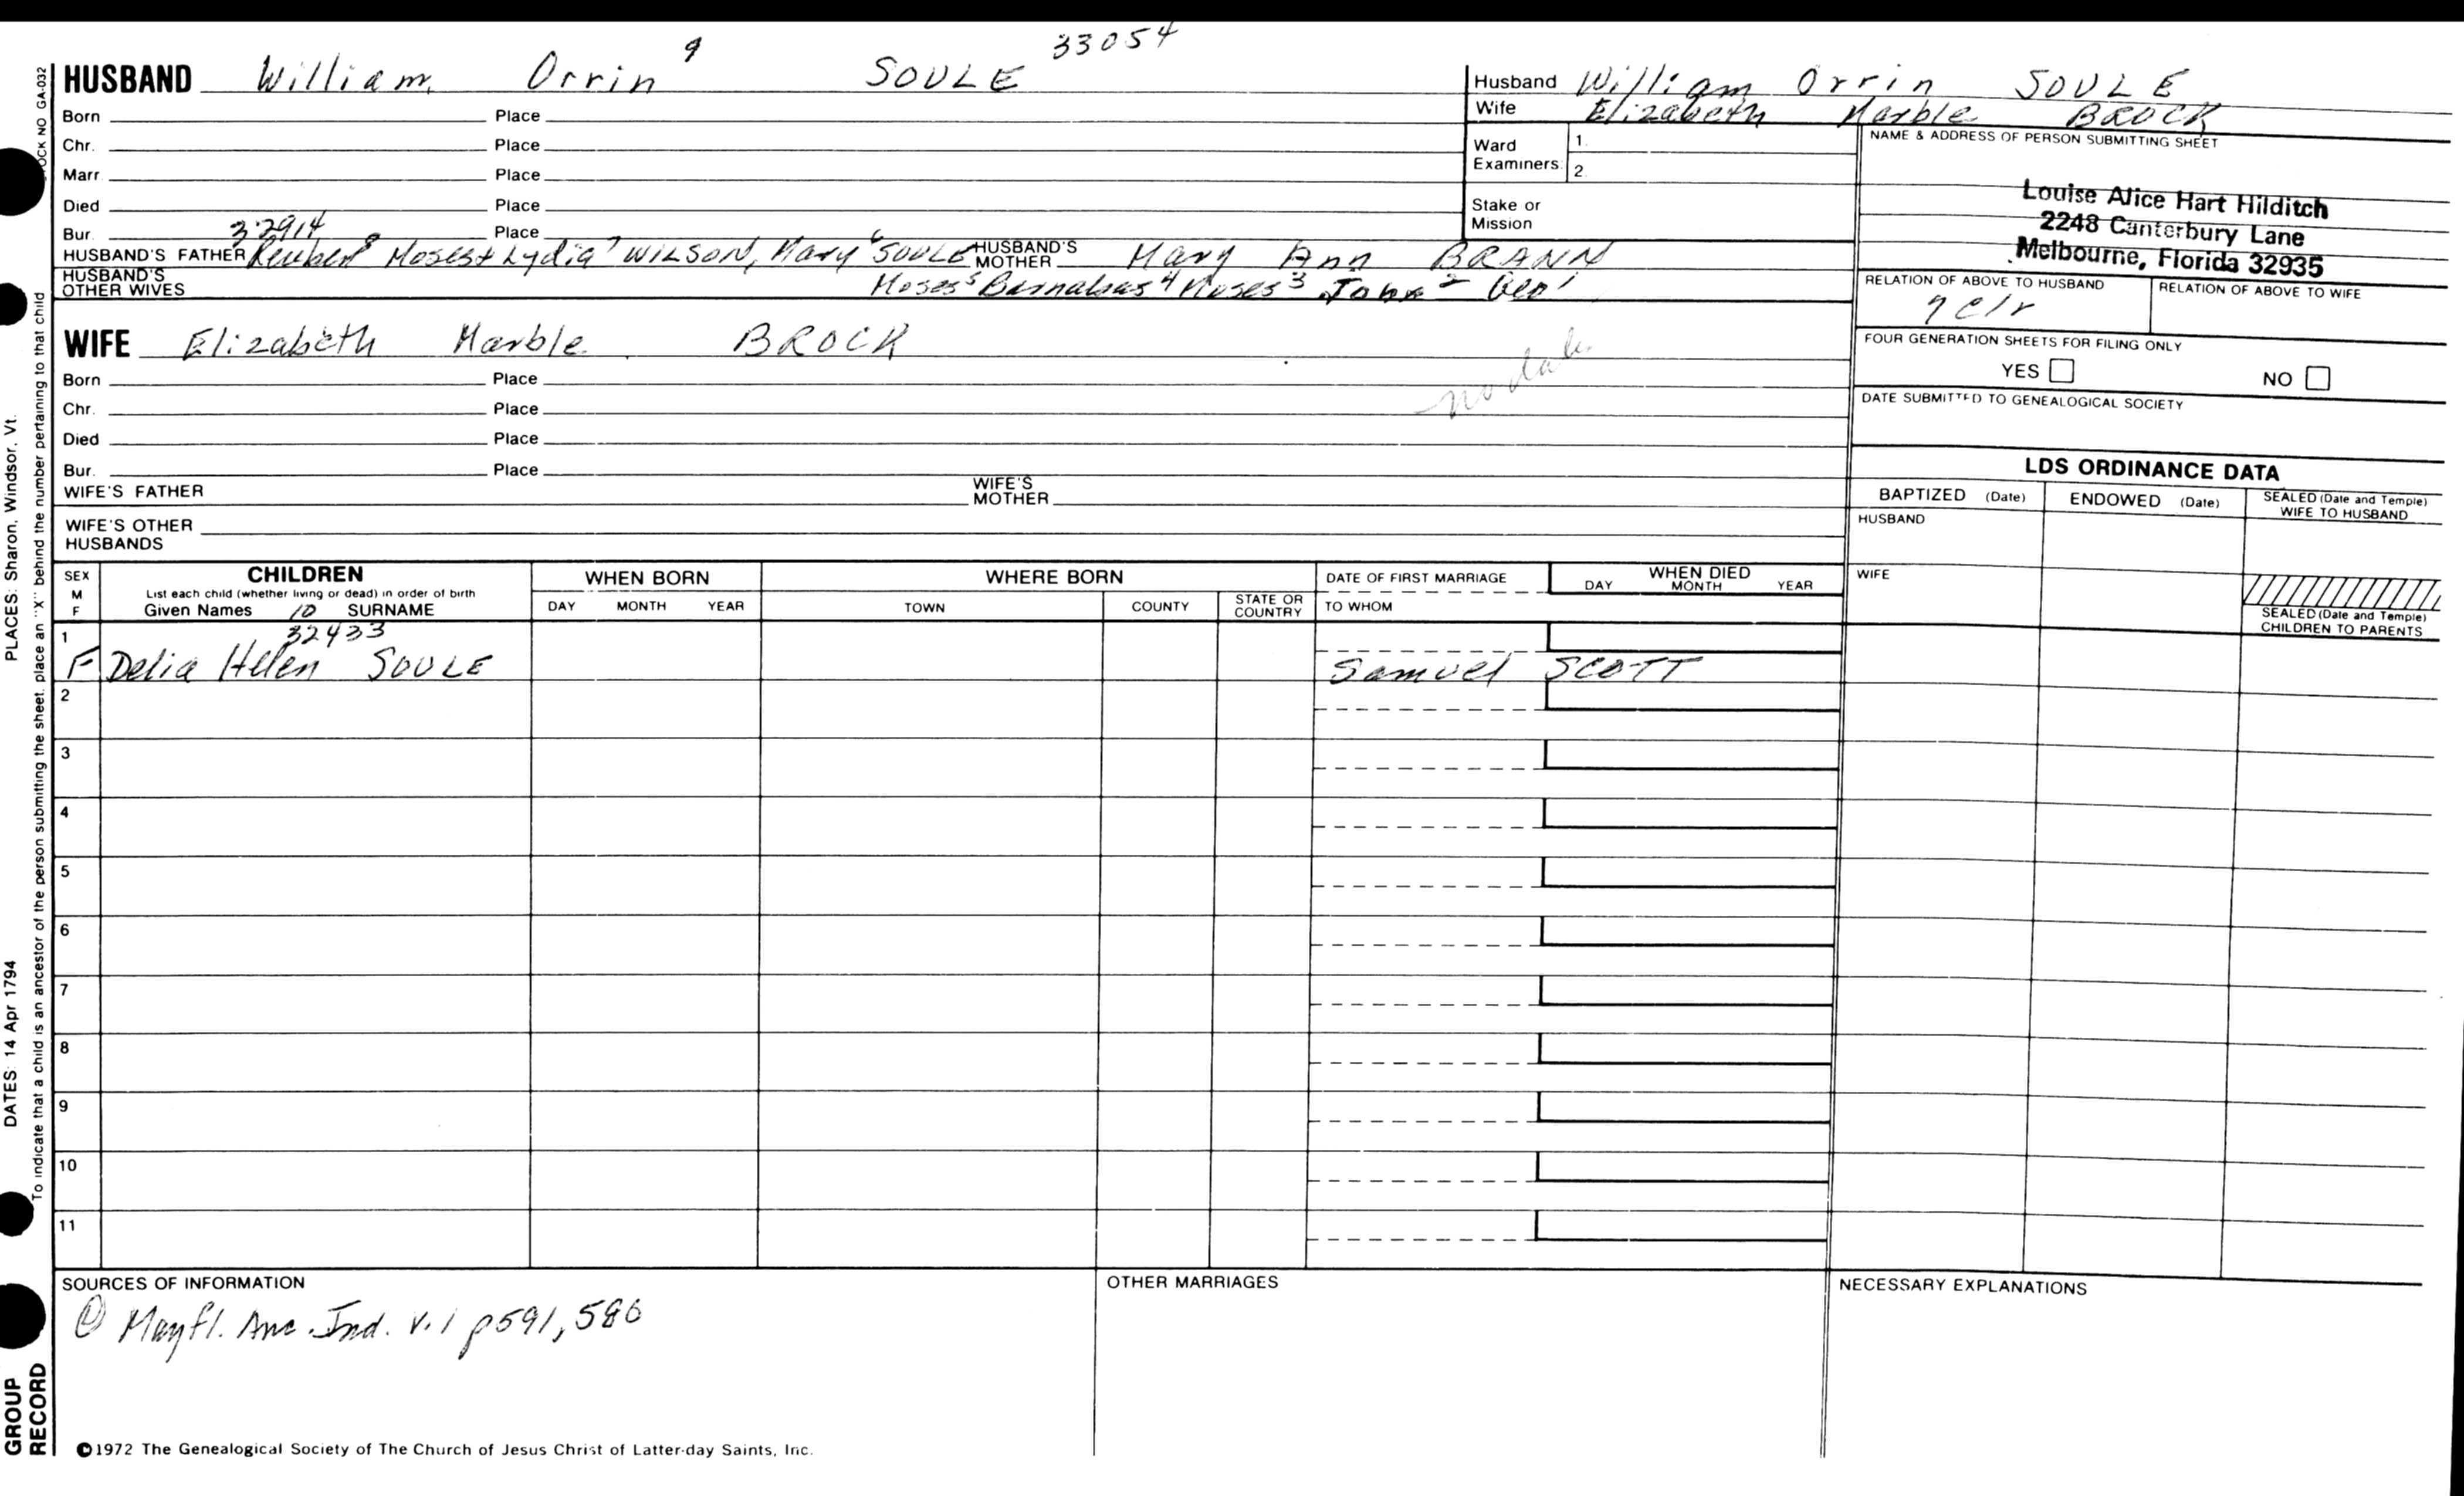 33054
HUSBAND William Orrin 9 SOULE
Born Place
Chr. Place
Marr Place
Died Place
Bur. Place
32914
HUSBAND'S FATHER Reuben 8 Moses + Lydia 7 WILSON, Mary 6 SOULE HUSBAND'S MOTHER Mary Ann BRANN
HUSBAND'S OTHER WIVES Moses 5 Barnabas 4 Moses 3 John 2 Geo 1
WIFE Elizabeth Marble BROCK
no date
Born Place
Chr. Place
Died Place
Bur. Place
WIFE'S FATHER WIFE'S MOTHER
WIFE'S OTHER HUSBANDS
Husband William Orrin SOULE
Wife Elizabeth Marble BROCK
Ward Examiners: 1.
2.
Stake or Mission
NAME & ADDRESS OF PERSON SUBMITTING SHEET
Louise Alice Hart Hilditch
2248 Canterbury Lane
Melbourne, Florida 32935
RELATION OF ABOVE TO HUSBAND RELATION OF ABOVE TO WIFE
7c1r
FOUR GENERATION SHEETS FOR FILING ONLY
YES NO
DATE SUBMITTED TO GENEALOGICAL SOCIETY
LDS ORDINANCE DATA
BAPTIZED (Date) ENDOWED (Date) SEALED (Date and Temple) WIFE TO HUSBAND
HUSBAND
WIFE
SEALED (Date and Temple) CHILDREN TO PARENTS
SEX M F
CHILDREN
List each child (whether living or dead) in order of birth
Given Names 10 SURNAME
WHEN BORN
DAY MONTH YEAR
WHERE BORN
TOWN COUNTY STATE OR COUNTRY
DATE OF FIRST MARRIAGE
TO WHOM
WHEN DIED
DAY MONTH YEAR
1 32433
F Delia Helen SOULE Samuel SCOTT
2
3
4
5
6
7
8
9
10
11
SOURCES OF INFORMATION
① Mayfl. Anc. Ind. v.1 p591, 586
OTHER MARRIAGES
NECESSARY EXPLANATIONS
©1972 The Genealogical Society of The Church of Jesus Christ of Latter-day Saints, Inc.
OCK NO GA-032
PLACES: Sharon, Windsor, Vt.
To indicate that a child is an ancestor of the person submitting the sheet, place an "X" behind the number pertaining to that child
DATES: 14 Apr 1794
GROUP
RECORD